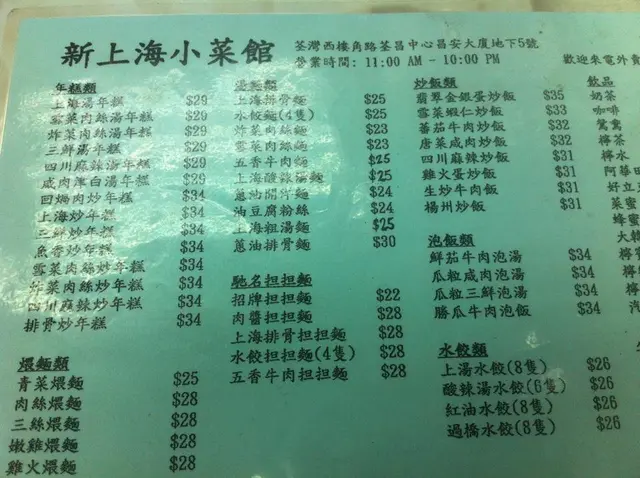 新上海小菜館
荃灣西樓角路荃昌中心昌安大廈地下5號
營業時間: 11:00 AM - 10:00 PM
歡迎來電外賣
年糕類
上海湯年糕 $29
雪菜肉絲湯年糕 $29
炸菜肉絲湯年糕 $29
三鮮湯年糕 $29
四川麻辣湯年糕 $29
咸肉津白湯年糕 $29
回鍋肉炒年糕 $34
上海炒年糕 $34
三絲炒年糕 $34
魚香炒年糕 $34
雪菜肉絲炒年糕 $34
炸菜肉絲炒年糕 $34
四川麻辣炒年糕 $34
排骨炒年糕 $34
煨麵類
青菜煨麵 $25
肉絲煨麵 $28
三絲煨麵 $28
嫩雞煨麵 $28
雞火煨麵 $28
湯麵類
上海排骨麵 $25
水餃麵(4隻) $25
炸菜肉絲麵 $23
雪菜肉絲麵 $23
五香牛肉麵 $25
上海酸辣湯麵 $25
蔥油開洋麵 $24
油豆腐粉絲 $24
上海粗湯麵 $25
蔥油排骨麵 $30
馳名担担麵
招牌担担麵 $22
肉醬担担麵 $28
上海排骨担担麵 $28
水餃担担麵(4隻) $28
五香牛肉担担麵 $28
炒飯類
翡翠金銀蛋炒飯 $35
雪菜蝦仁炒飯 $33
蕃茄牛肉炒飯 $32
唐菜咸肉炒飯 $32
四川麻辣炒飯 $31
雞火蛋炒飯 $31
生炒牛肉飯 $31
楊州炒飯 $31
泡飯類
鮮茄牛肉泡湯 $34
瓜粒咸肉泡湯 $34
瓜粒三鮮泡湯 $34
勝瓜牛肉泡飯 $34
水餃類
上湯水餃(8隻) $26
酸辣湯水餃(6隻) $26
紅油水餃(8隻) $26
過橋水餃(8隻) $26
飲品
奶茶
咖啡
鴛鴦
檸茶
檸水
阿華田
好立
菜蜜
蜂蜜